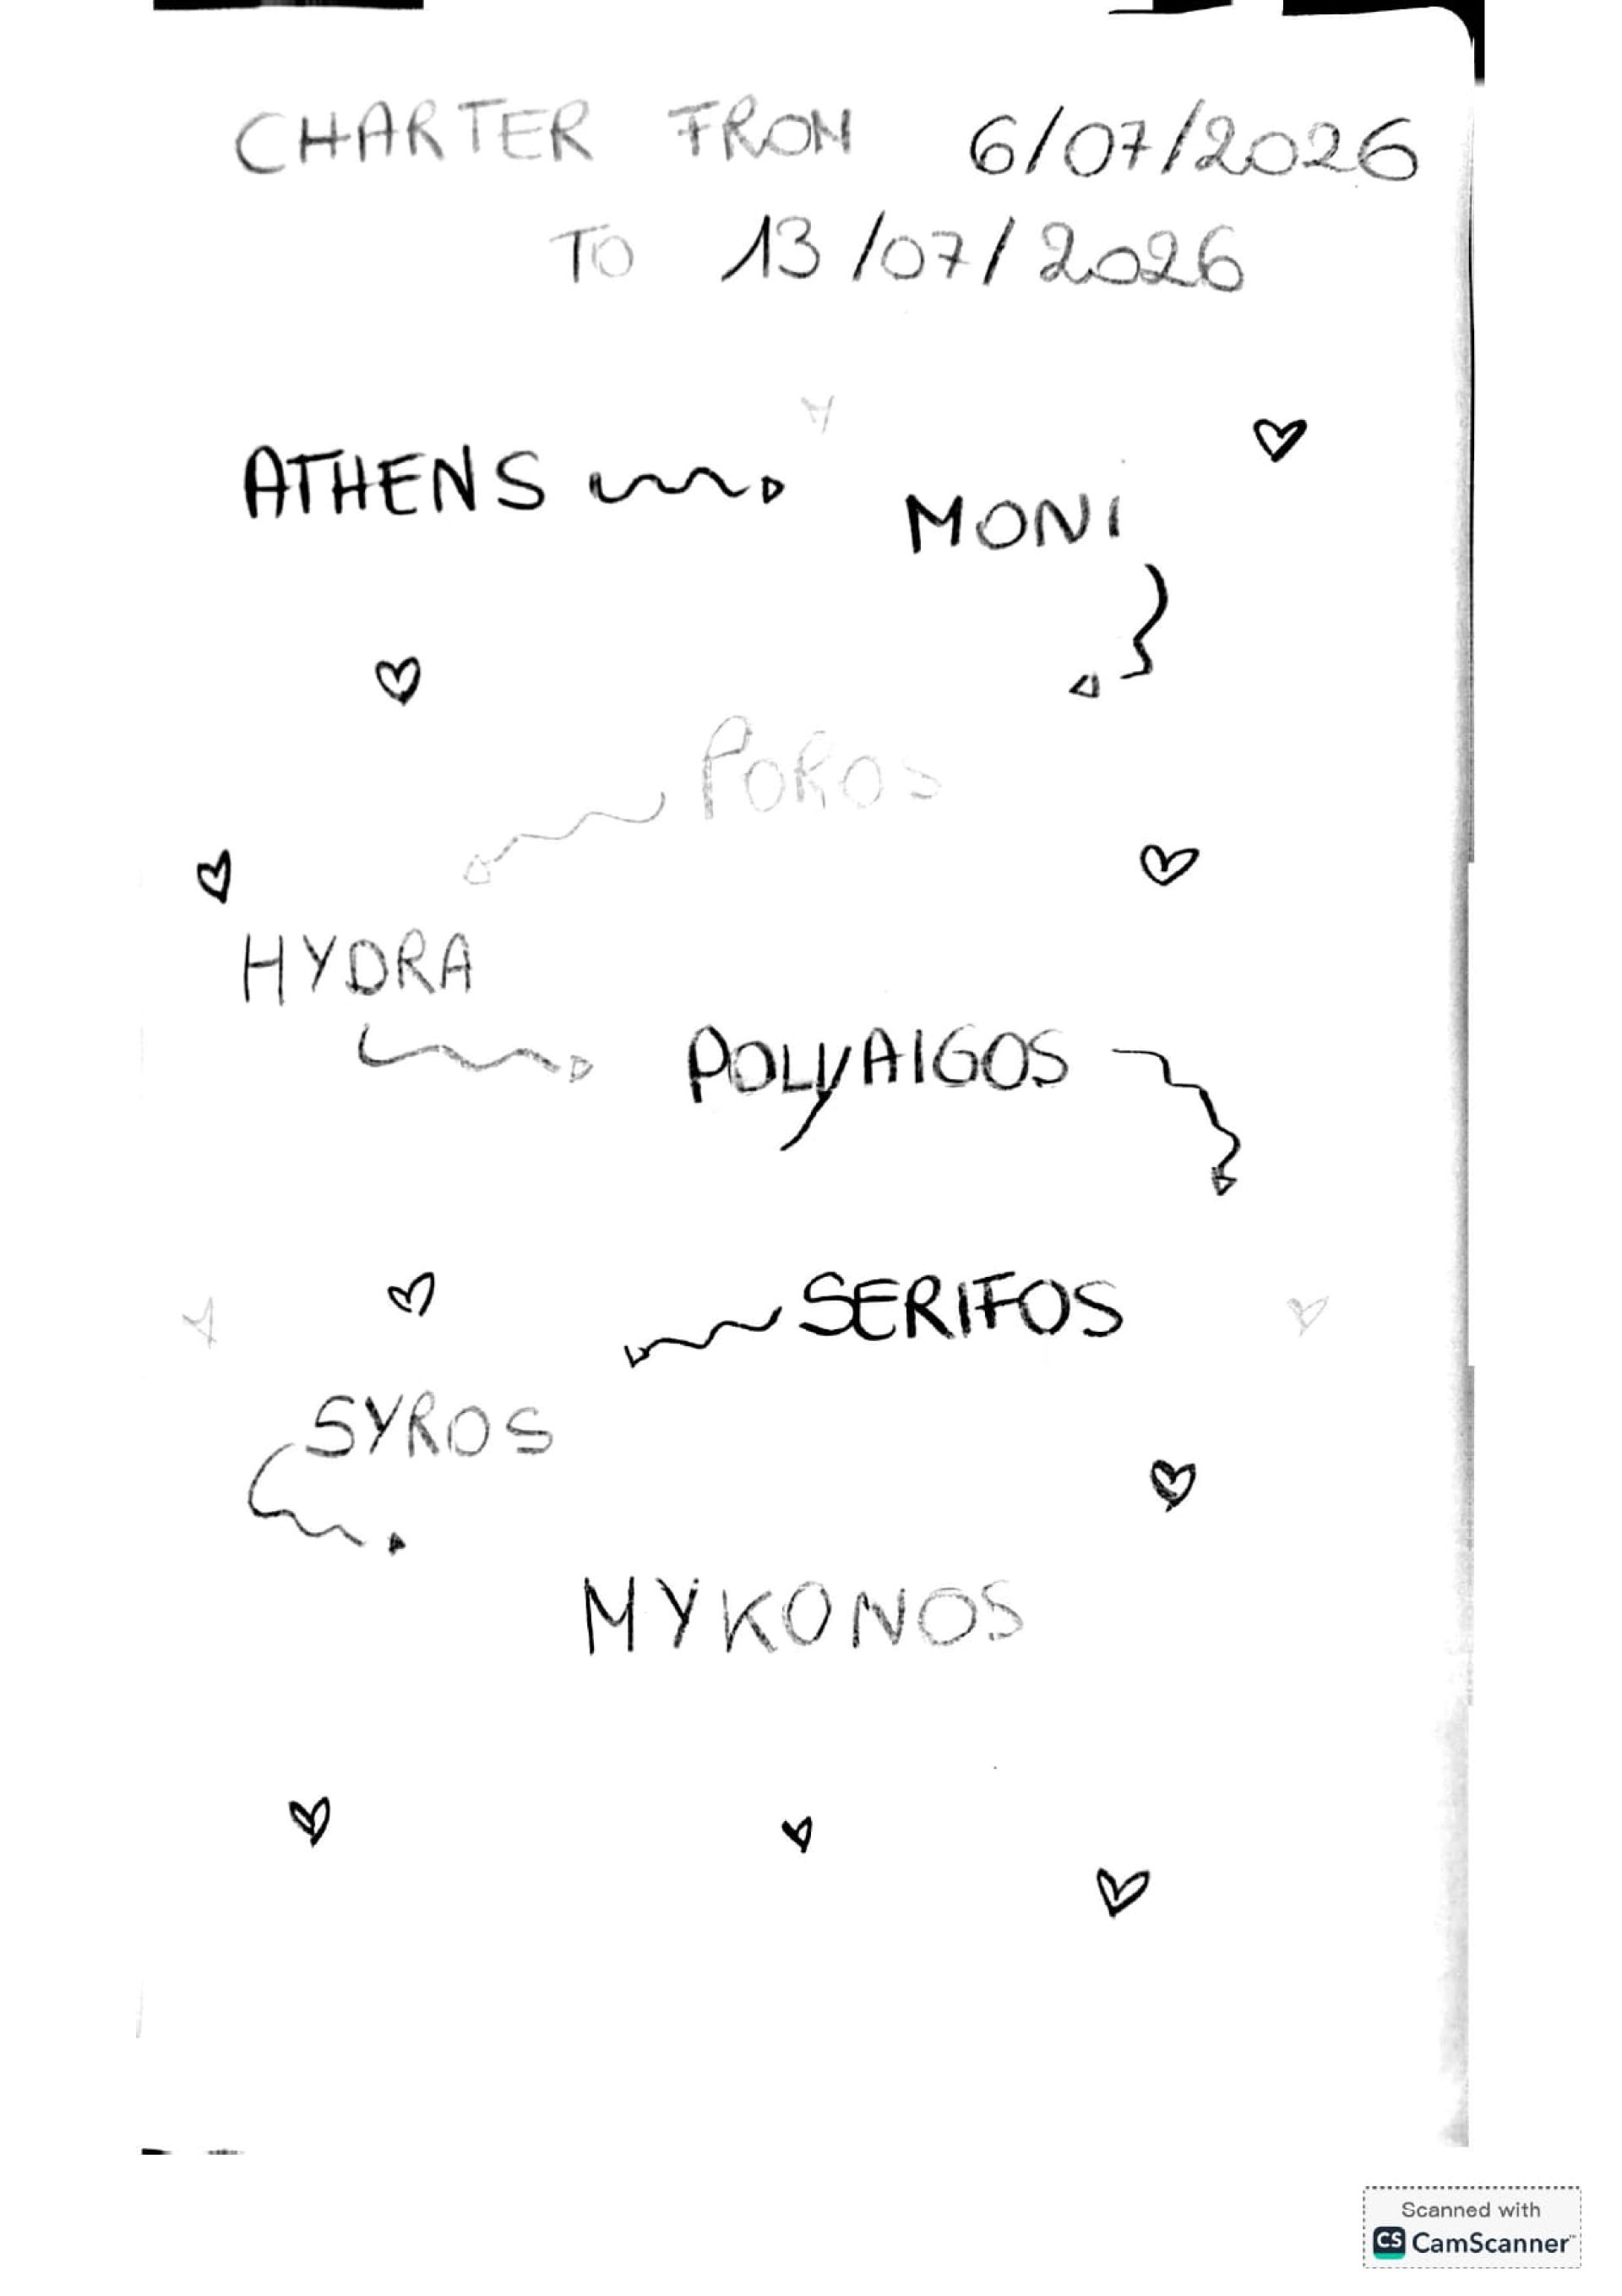 CHARTER FROM 6/07/2026
TO 13/07/2026
ATHENS
MONI
POROS
HYDRA
POLYAIGOS
SERIFOS
SYROS
MYKONOS
Scanned with
CS CamScanner™